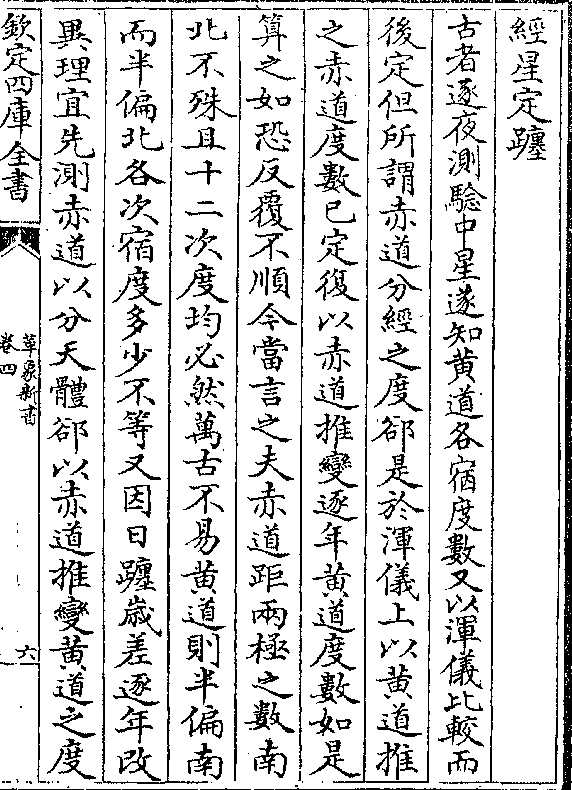 經星定躔
古者逐夜測驗中星遂知黄道各宿度數又以渾儀比較而
後定但所謂赤道分經之度郤是於渾儀上以黄道推
之赤道度數已定復以赤道推變逐年黄道度數如是
算之如恐反覆不順今當言之夫赤道距兩極之數南
北不殊且十二次度均必然萬古不易黄道則半偏南
而半偏北各次宿度多少不等又因日躔歳差逐年改
異理宜先測赤道以分天體郤以赤道推變黄道之度
欽定四庫全書
革象新書
卷四
六